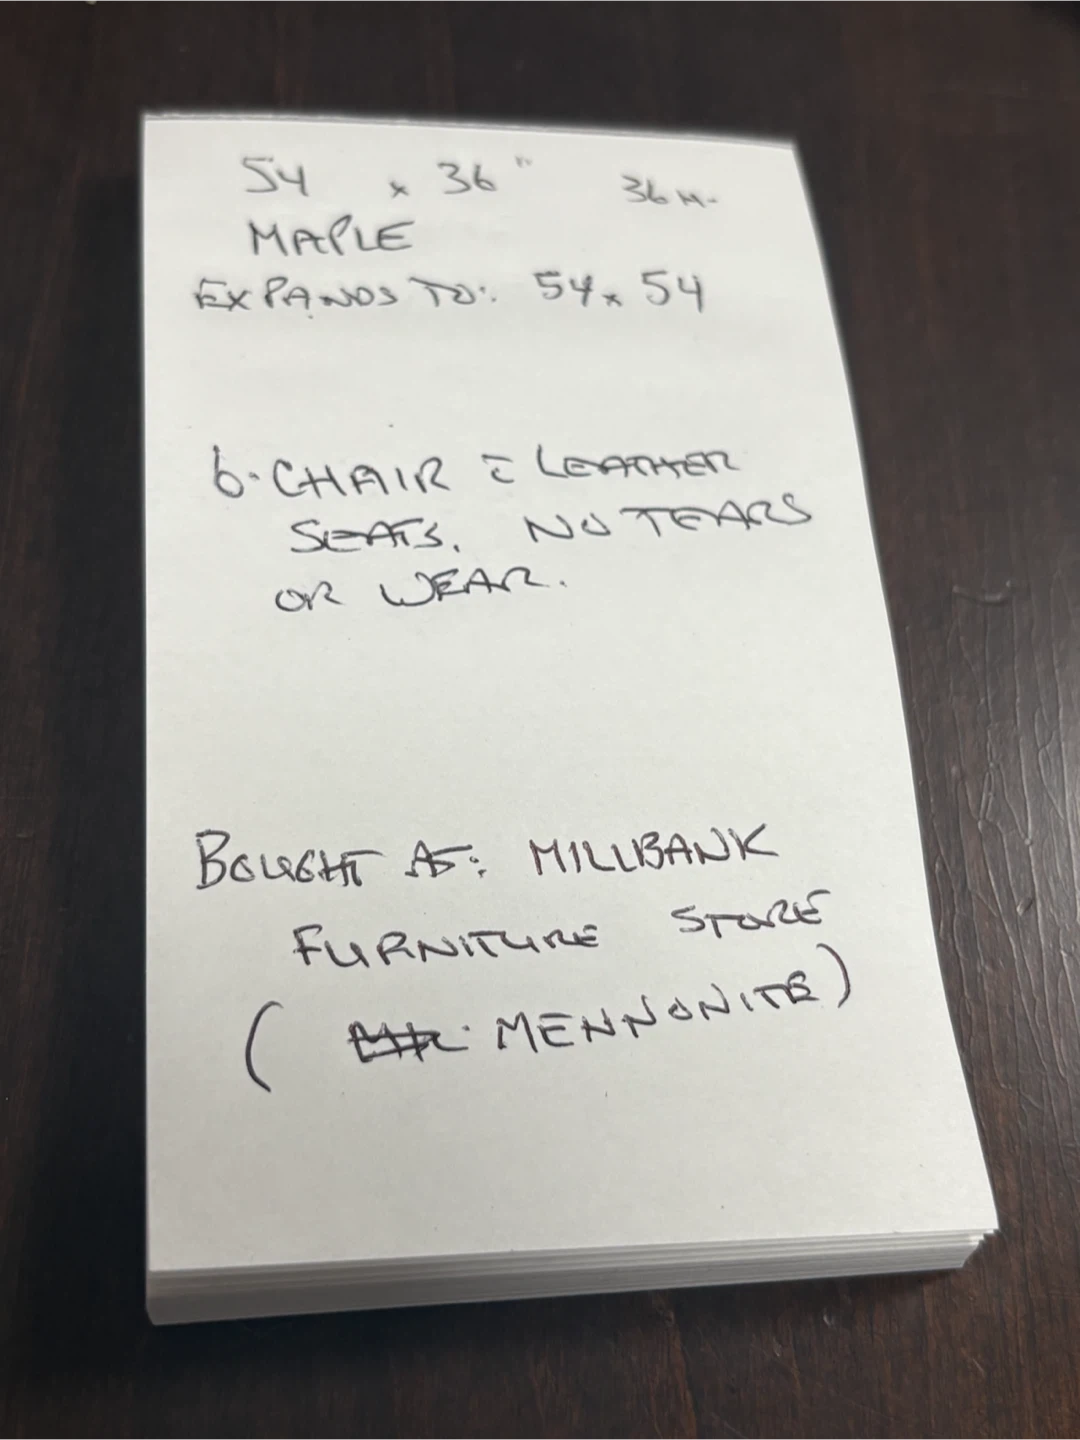 54 x 36" 36 H.
MAPLE
EXPANDS TO: 54 x 54
6. CHAIR c̄ LEATHER
SEATS. NO TEARS
OR WEAR.
BOUGHT AT: MILLBANK
FURNITURE STORE
( MENNONITE)